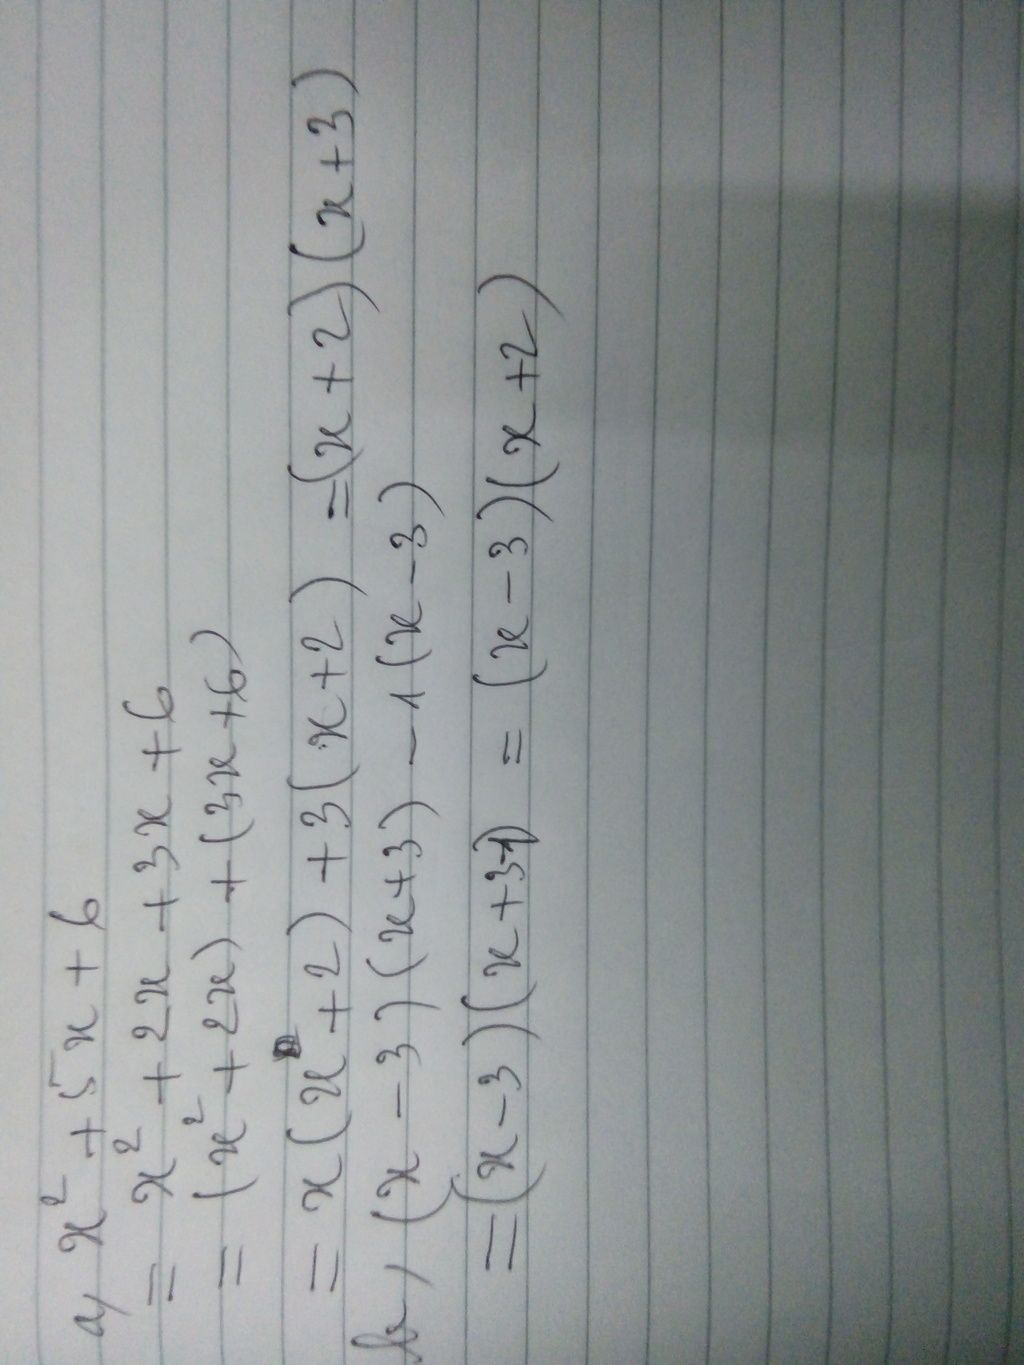 a, x² + 5x + 6
= x² + 2x + 3x + 6
= (x² + 2x) + (3x + 6)
= x(x + 2) + 3(x + 2) = (x + 2)(x + 3)
b, (x - 3)(x + 3) - 1(x - 3)
= (x - 3)(x + 3 - 1) = (x - 3)(x + 2)